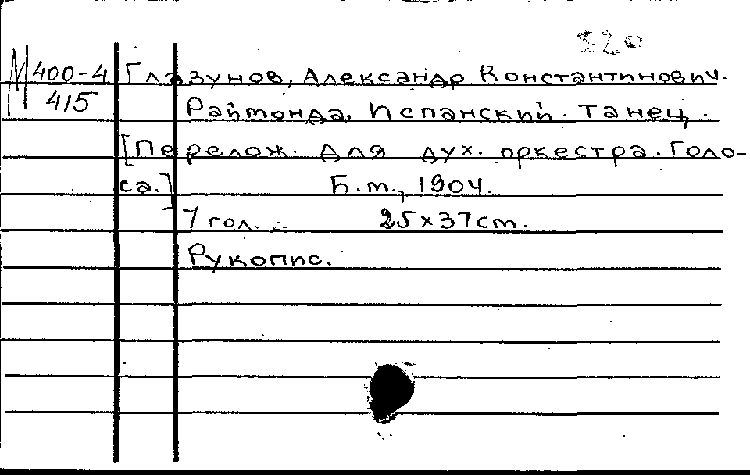 520
М 400-4 Глазунов, Александр Константинович.
415 Раймонда, Испанский. Танец.
[Перелож. для дух. оркестра. Голо-
са.] Б.м., 1904.
7 гол. 25х37ст.
Рукопис.